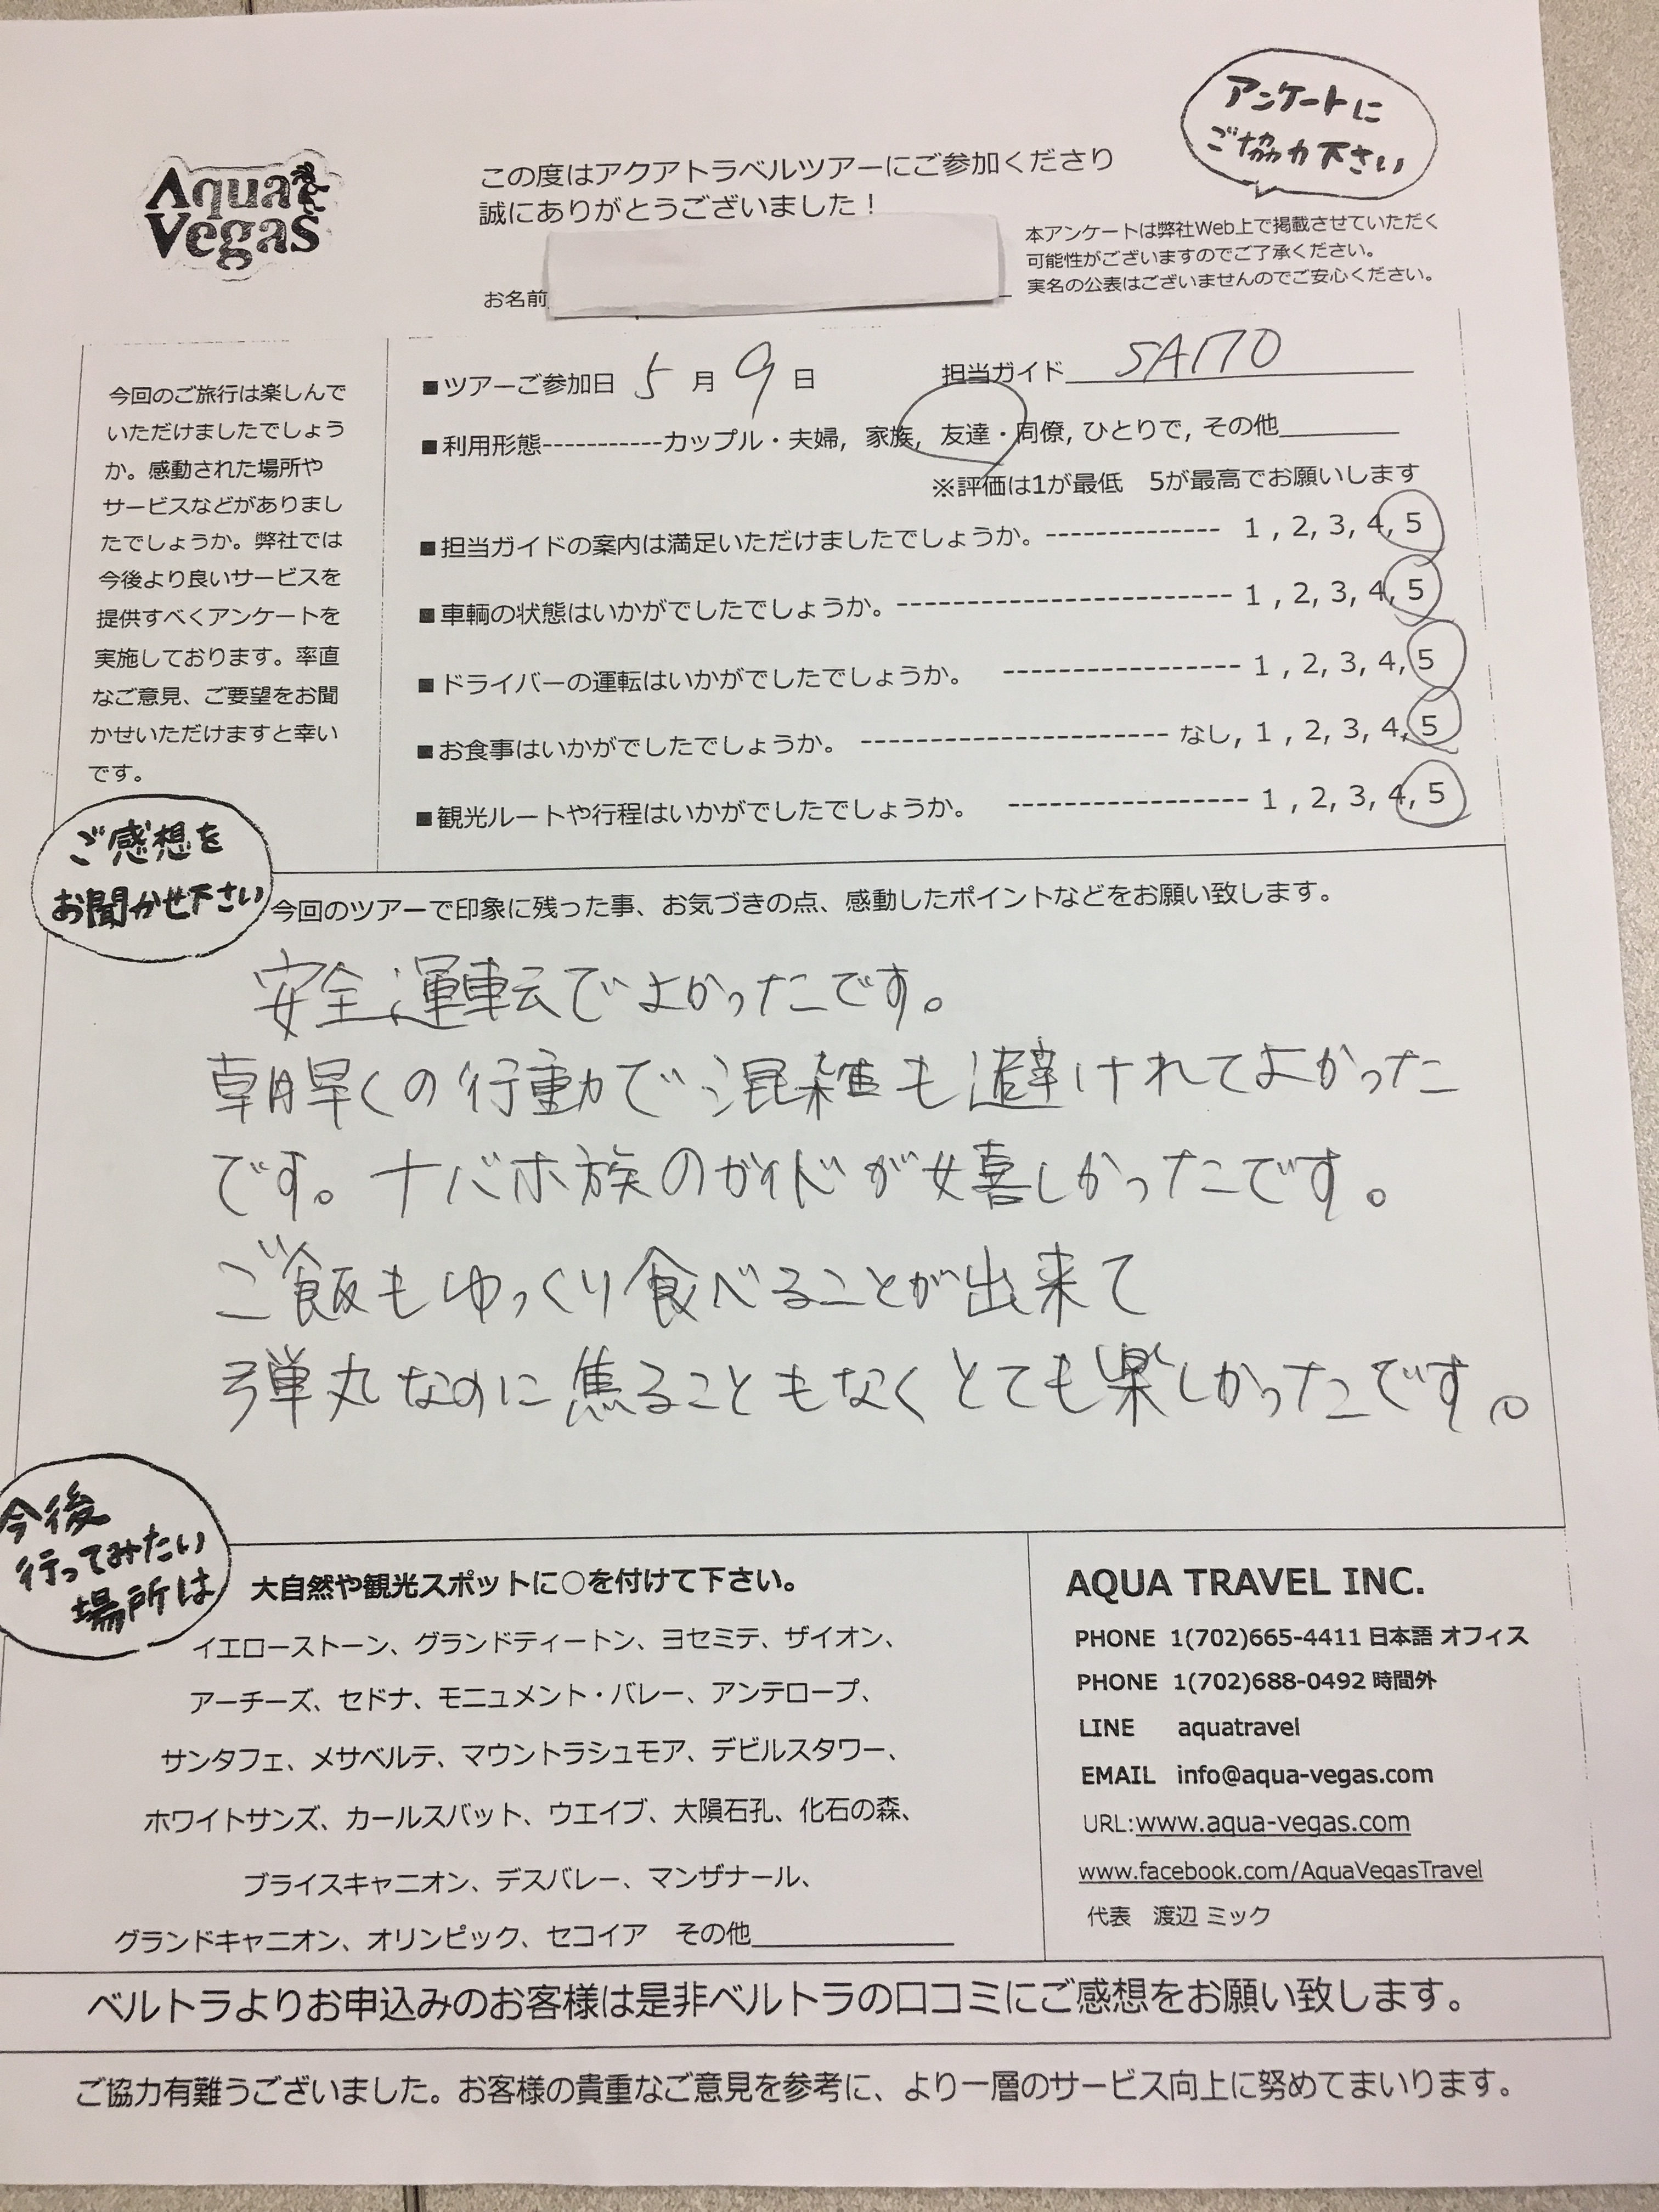 アンケートに
ご協力下さい
Aqua
Vegas
この度はアクアトラベルツアーにご参加くださり
誠にありがとうございました！
本アンケートは弊社Web上で掲載させていただく
可能性がございますのでご了承ください。
実名の公表はございませんのでご安心ください。
お名前
今回のご旅行は楽しんで
いただけましたでしょう
か。感動された場所や
サービスなどがありまし
たでしょうか。弊社では
今後より良いサービスを
提供すべくアンケートを
実施しております。率直
なご意見、ご要望をお聞
かせいただけますと幸い
です。
■ツアーご参加日 5 月 9 日 担当ガイド SAITO
■利用形態-----------カップル・夫婦, 家族, 友達・同僚, ひとりで, その他
※評価は1が最低 5が最高でお願いします
■担当ガイドの案内は満足いただけましたでしょうか。-------------- 1 , 2, 3, 4, 5
■車輌の状態はいかがでしたでしょうか。------------------------ 1 , 2, 3, 4, 5
■ドライバーの運転はいかがでしたでしょうか。 ----------------- 1 , 2, 3, 4, 5
■お食事はいかがでしたでしょうか。 ---------------------- なし, 1 , 2, 3, 4, 5
■観光ルートや行程はいかがでしたでしょうか。 ----------------- 1 , 2, 3, 4, 5
ご感想を
お聞かせ下さい
今回のツアーで印象に残った事、お気づきの点、感動したポイントなどをお願い致します。
安全運転でよかったです。
朝早くの行動で混雑も避けれてよかった
です。ナバホ族のガイドが嬉しかったです。
ご飯もゆっくり食べることが出来て
弾丸なのに焦ることもなくとても楽しかったです。
今後
行ってみたい
場所は
大自然や観光スポットに○を付けて下さい。
イエローストーン、グランドティートン、ヨセミテ、ザイオン、
アーチーズ、セドナ、モニュメント・バレー、アンテロープ、
サンタフェ、メサベルテ、マウントラシュモア、デビルスタワー、
ホワイトサンズ、カールスバット、ウエイブ、大隕石孔、化石の森、
ブライスキャニオン、デスバレー、マンザナール、
グランドキャニオン、オリンピック、セコイア その他
AQUA TRAVEL INC.
PHONE 1(702)665-4411 日本語 オフィス
PHONE 1(702)688-0492 時間外
LINE aquatravel
EMAIL info@aqua-vegas.com
URL:www.aqua-vegas.com
www.facebook.com/AquaVegasTravel
代表 渡辺 ミック
ベルトラよりお申込みのお客様は是非ベルトラの口コミにご感想をお願い致します。
ご協力有難うございました。お客様の貴重なご意見を参考に、より一層のサービス向上に努めてまいります。